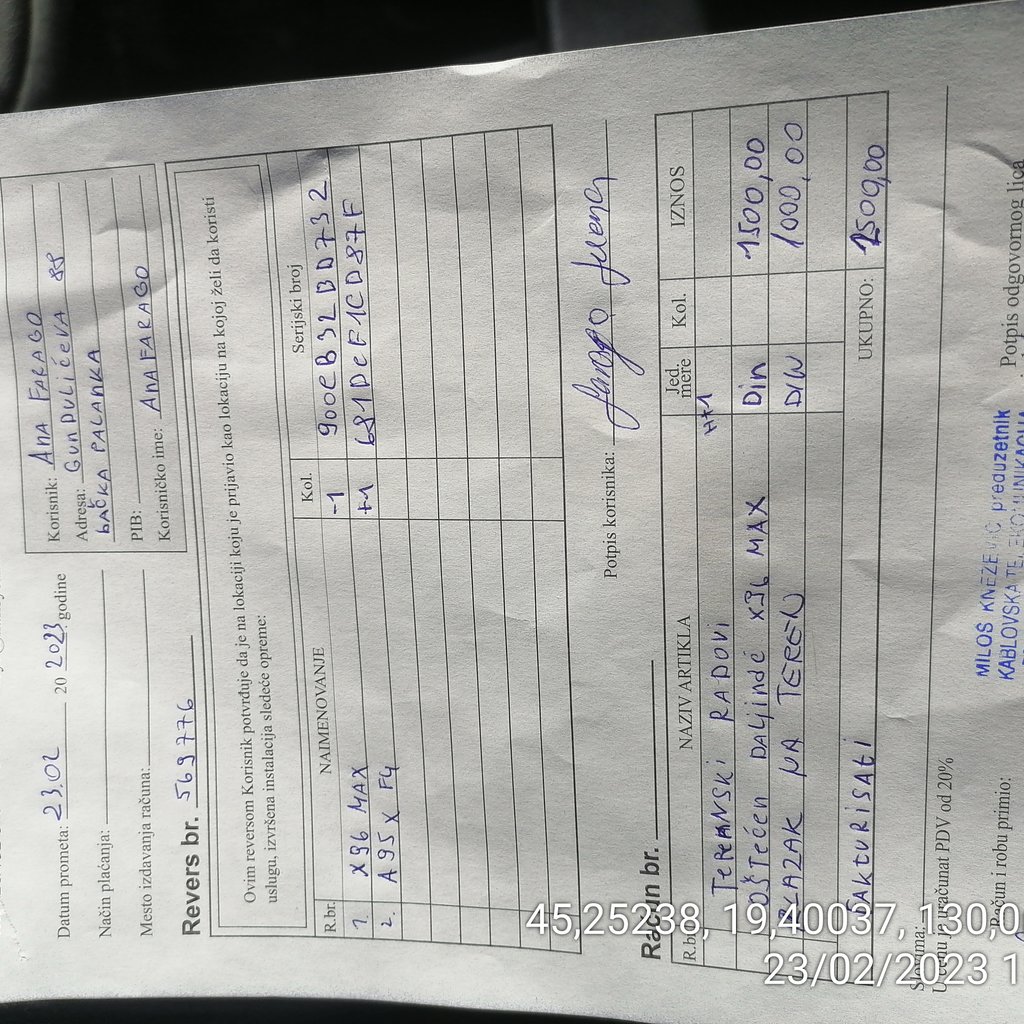 Datum prometa: 23.02 20 2023. godine
Način plaćanja:
Mesto izdavanja računa:
Korisnik: ANA FARAGO
Adresa: GUNDULIĆEVA 85
BAČKA PALANKA
PIB:
Korisničko ime: ANAFARAGO
Revers br. 569776
Ovim reversom Korisnik potvrđuje da je na lokaciji koju je prijavio kao lokaciju na kojoj želi da koristi
uslugu, izvršena instalacija sledeće opreme:
R.br. NAIMENOVANJE Kol. Serijski broj
1. X96 MAX -1 900EB32BD732
2. A95X F4 +1 681DEF1CD87F
Potpis korisnika: Farago Jelena
Račun br.
R.br. NAZIV ARTIKLA Jed. mere Kol. IZNOS
TERENSKI RADOVI H+1
OŠTEĆEN DALJINDĆ X96 MAX Din 1500,00
IZLAZAK NA TEREN DIN 1000,00
FAKTURISATI UKUPNO: 2500,00
Slovima:
U cenu je uračunat PDV od 20%
Račun i robu primio:
Potpis odgovornog lica
MILOS KNEZEVIC preduzetnik
KABLOVSKA TELEKOMUNIKACIJA
45,25238, 19,40037, 130,0
23/02/2023 1